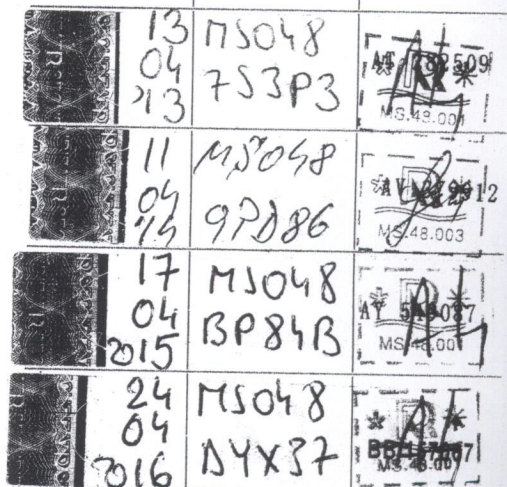 13
04
'13
MS048
7S3P3
AT 782509
MS.48.001
11
04
MS048
9PD86
MS.48.003
17
04
2015
MS048
BP84B
AY
MS.48.001
24
04
2016
MS048
D4X37
MS.48.001